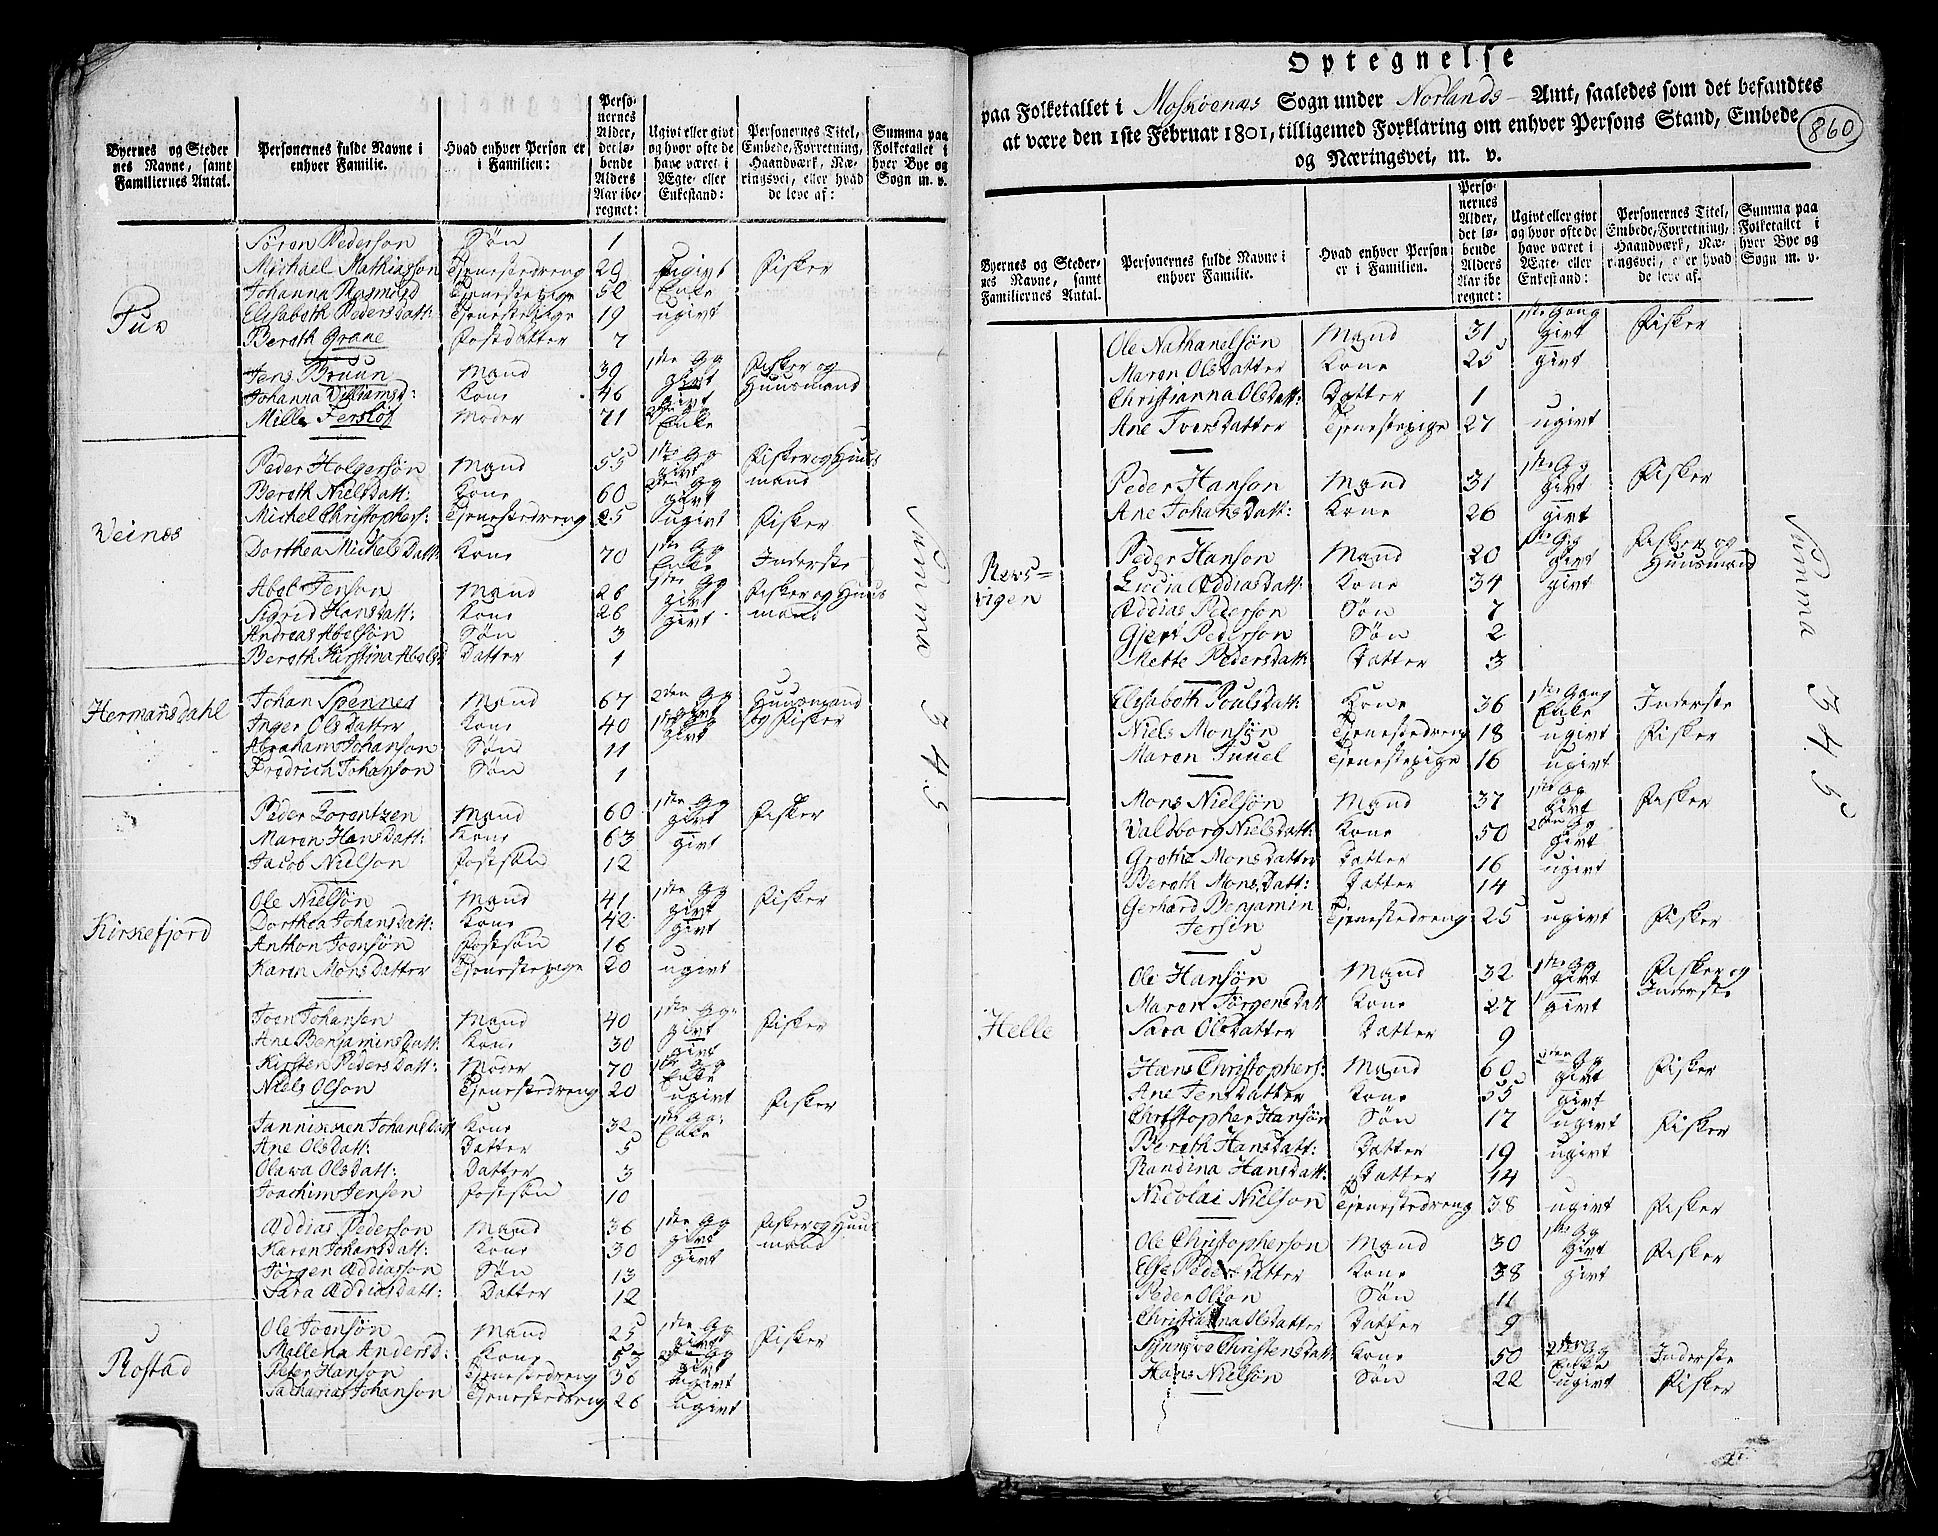 Byernes og Steder
nes Navne, samt
Familiernes Antal.
Personernes fulde Navne i
enhver Familie.
Hvad enhver Person er
i Familien:
Perso-
nernes
Alder,
det lø-
bende
Alders
Aar ibe-
regnet:
Ugivt eller givt
og hvor ofte de
have været i
Ægte- eller
Enkestand:
Personernes Titel,
Embede, Forretning,
Haandværk, Næ-
ringsvei, eller hvad
de leve af:
Summa paa
Folketallet i
hver Bye og
Sogn m. v.
Søren Pederson Søn 1
Michael Mathiasson Tjenestedreng 29 ugivt Fisker
Johanna Rasmusd Tjenestepige 52 Enke
Elisabeth Pedersdatt: Tjenestepige 19 ugivt
Tuv
Berath Grane Fostdatter 7
Jens Bruun Mand 39 1ste Gg givt Fisker og
Johanna Williamsd: Kone 46 givt Huusmand
Mille Ferslöf Moder 71 Enke
Peder Holgersön Mand 55 1ste Gg givt Fisker og Huus
Berath Nielsdatt: Kone 60 2den Gg givt mand
Michel Christophers: Tjenestedreng 25 ugivt Fisker
Veinæs
Dorthea Michelsdatt: Kone 70 1ste Gg Enke Inderste
Abel Jenson Mand 26 1ste Gg givt Fisker og Huus
Sigrid Hansdatt: Kone 26 givt mand
Andreas Abelsön Søn 3
Berath Kirstina Abelsd Datter 1
Johan Spennes Mand 67 2den Gg givt Huusmand
Hermansdahl
Inger Olsdatter Kone 40 1ste Gg givt og Fisker
Abraham Johanson Søn 11
Fredrich Johanson Søn 1
Peder Lorentzen Mand 60 1ste Gg givt Fisker
Maren Hansdatt: Kone 63 givt
Jacob Nielson Fostsön 12
Ole Nielsön Mand 41 1ste Gg givt Fisker
Dorthea Johansdatt: Kone 42 givt
Kirkefjord
Anthon Joensön Fostsön 16
Karen Monsdatter Tjenestepige 20 ugivt
Joen Johansen Mand 40 1ste Gg: givt Fisker
Ane Benjaminsdatt: Kone 30 givt
Kirsten Pedersdatt: Moder 70 1ste Gg Enke
Niels Olson Tjenestedreng 20 ugivt Fisker
Johansdatt Kone 32 1ste Gg: Enke
Ane Olsdatt: Datter 5
Olava Olsdatt: Datter 3
Joachim Jensen Fostsön 10
Æddias Pederson Mand 36 1ste Gg givt Fisker og Huus
Karen Johansdatt: Kone 30 givt mand
Jörgen Æddiasson Søn 13
Sara Æddiasdatt: Datter 12
Ole Joensön Mand 25 1ste Gg givt Fisker
Mallena Andersd: Kone 53 2den Gg givt
Rostad
Peter Hanson Tjenestedreng 36 ugivt
Zacharias Johanson Tjenestedreng 26 ugivt
Summa 345
Optegnelse
paa Folketallet i Moskøenæs Sogn under Norlands Amt, saaledes som det befandtes
at være den 1ste Februar 1801, tilligemed Forklaring om enhver Persons Stand, Embede
og Næringsvei, m. v.
860
Byernes og Steder-
nes Navne, samt
Familiernes Antal.
Personernes fulde Navne i
enhver Familie.
Hvad enhver Person
er i Familien.
Perso-
nernes
Alder,
det lø-
bende
Alders
Aar ibe
regnet:
Ugivt eller givt
og hvor ofte de
have været i
Ægte- eller
Enkestand:
Personernes Titel,
Embede, Forretning,
Haandværk, Næ-
ringsvei, eller hvad
de leve af.
Summa paa
Folketallet i
hver Bye og
Sogn m. v.
Ole Nathanelsön Mand 31 1ste Gang givt Fisker
Maren Olsdatter Kone 25 givt
Christianna Olsdatt: Datter 1
Ane Iversdatter Tjenestepige 27 ugivt
Peder Hanson Mand 31 1ste Gg givt Fisker
Ane Johansdatt: Kone 26 givt
Peder Hanson Mand 20 1ste Gg givt Fisker og
Revs=
vigen
Lucia Æddiasdatt: Kone 34 givt Huusmand
Æddias Pederson Søn 7
Gjert Pederson Søn 2
Mette Pedersdatt: Datter 3
Elisabeth Poulsdatt: Kone 36 1ste Gang Enke Inderste
Niels Monsön Tjenestedreng 18 ugivt Fisker
Maren Juuel Tjenestepige 16 ugivt
Mons Nielsön Mand 37 1ste Gg givt Fisker
Valdborg Nielsdatt: Kone 50 2den Gg givt
Grethe Monsdatter Datter 16 ugivt
Berath Monsdatt: Datter 14
Gerhard Benjamin
Jersin Tjenestedreng 25 ugivt Fisker
Ole Hansön Mand 32 1ste Gg givt Fisker og
Maren Jörgensdatt Kone 27 givt Inderste
Helle
Sara Olsdatter Datter 9
Hans Christophers: Mand 60 2den Gg givt Fisker
Ane Jensdatter Kone 55 givt
Christopher Hansön Søn 17 ugivt Fisker
Berath Hansdatt: Datter 19 ugivt
Randina Hansdatt: Datter 14
Nicolai Nielson Tjenestedreng 38 ugivt Fisker
Ole Christopherson Mand 30 1ste Gg givt Fisker
Else Pedersdatter Kone 38 givt
Peder Olson Søn 11
Christianna Olsdatter Datter 9
Christensdatt Kone 50 2den Gg Enke Inderste
Hans Nielsön Søn 22 ugivt Fisker
Summa 345